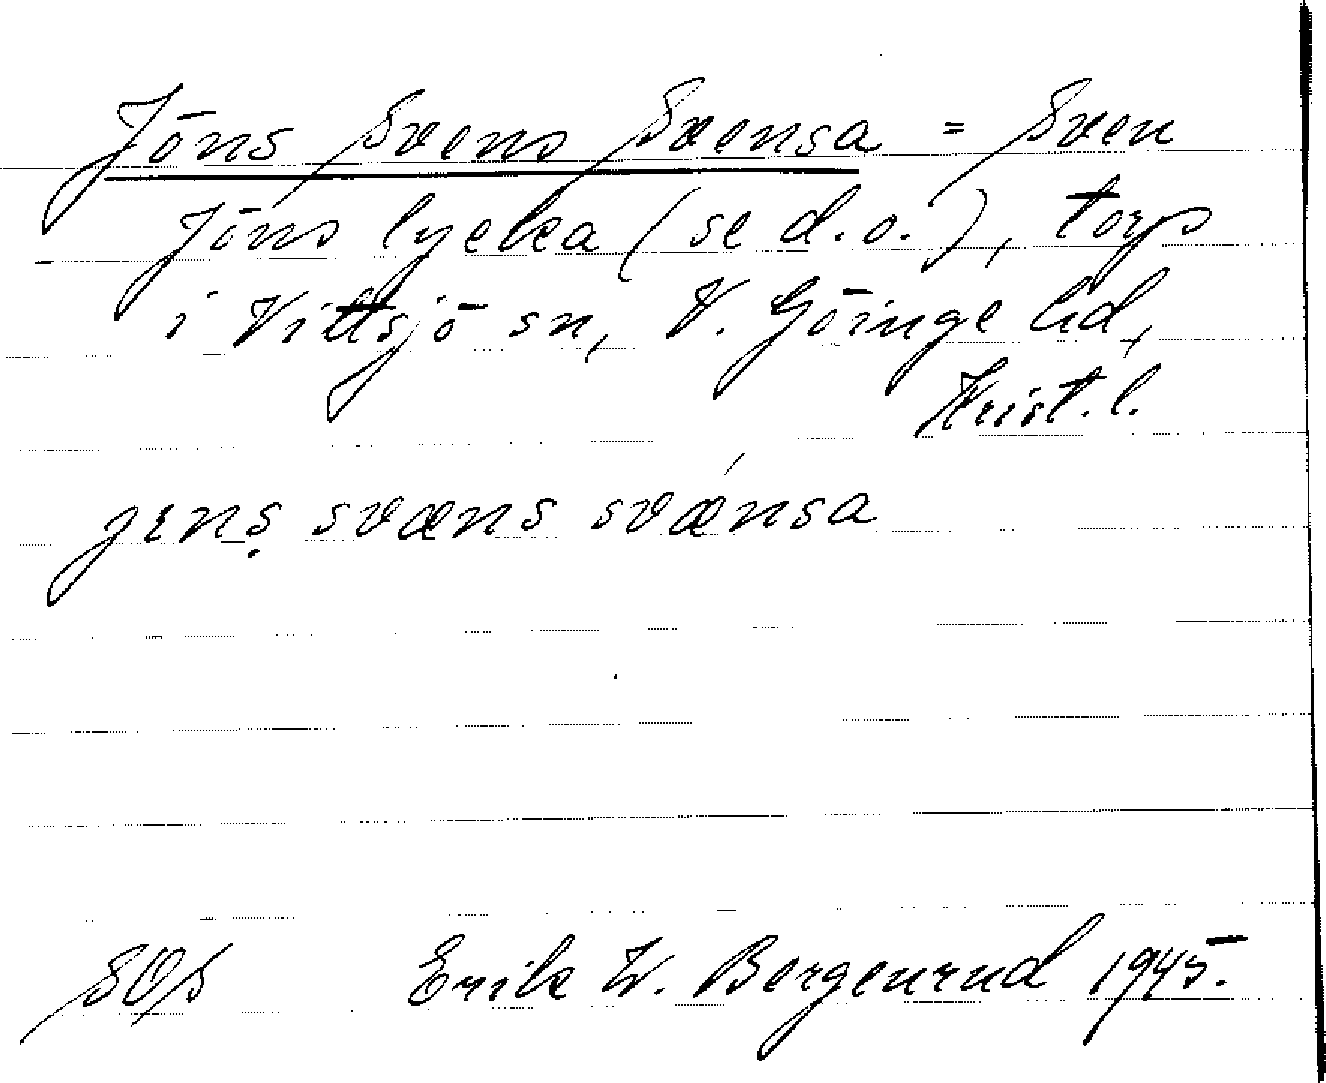 Jöns Svens Svensa = Sven
Jöns lycka (se d.o.), torp
i Vittsjö sn, V. Göinge hd,
Krist. l.
jens̩ svæns svǽnsa
SOS Erik W. Bergenrud 1945.